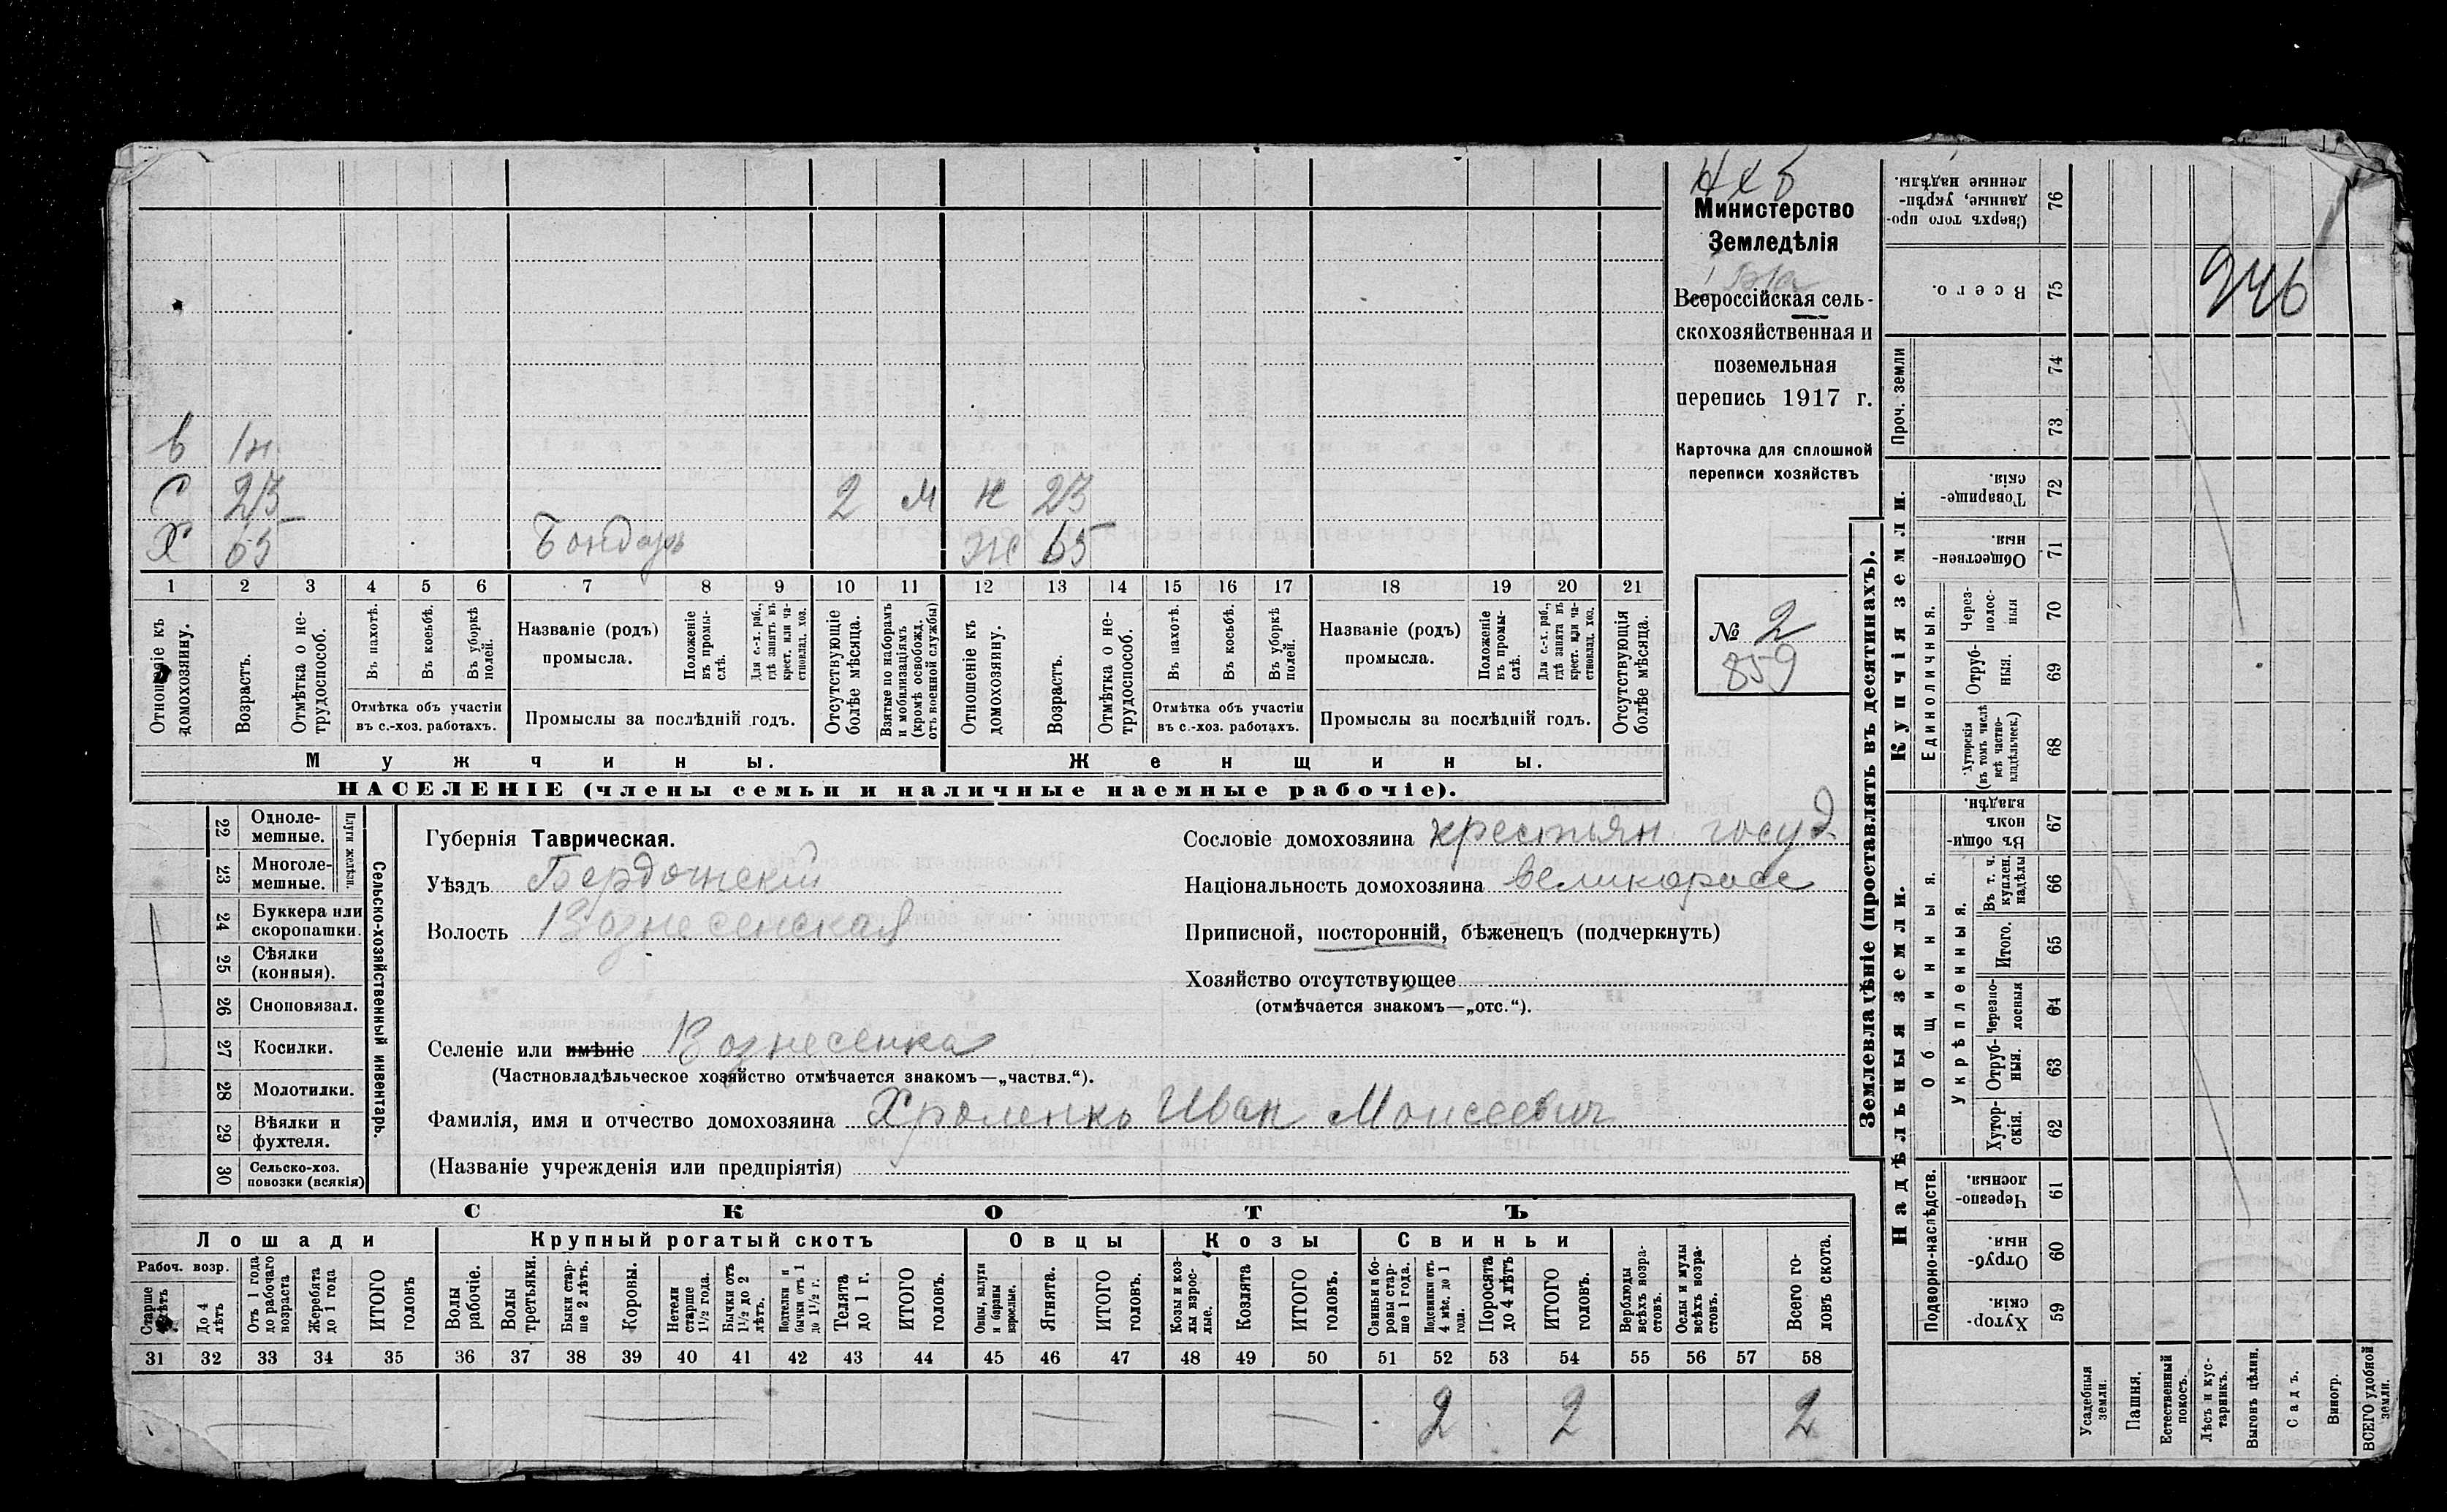 Министерство
Земледѣлія
Всероссійская сель-
скохозяйственная и
поземельная
перепись 1917 г.
Карточка для сплошной
переписи хозяйствъ
№ 2
859
946
в 1н.
С 23 2 м н 23
Х 65 Бондарь Ж 65
1 2 3 4 5 6 7 8 9 10 11 12 13 14 15 16 17 18 19 20 21
Отношеніе къ домохозяину.
Возрастъ.
Отмѣтка о не-трудоспособ.
Въ пахотѣ.
Въ косьбѣ.
Въ уборкѣ полей.
Отмѣтка объ участіи
въ с.-хоз. работахъ.
Названіе (родъ)
промысла.
Положеніе въ промы-слѣ.
Для с.-х. раб., гдѣ занятъ въ крест. или ча-стновлад. хоз.
Промыслы за послѣдній годъ.
Отсутствующіе болѣе мѣсяца.
Взятые по наборамъ и мобилизаціямъ (кромѣ освобожд. отъ военной службы)
Отношеніе къ домохозяину.
Возрастъ.
Отмѣтка о не-трудоспособ.
Въ пахотѣ.
Въ косьбѣ.
Въ уборкѣ полей.
Отмѣтка объ участіи
въ с.-хоз. работахъ.
Названіе (родъ)
промысла.
Положеніе въ промы-слѣ.
Для с.-х. раб., гдѣ занята въ крест. или ча-стновлад. хоз.
Промыслы за послѣдній годъ.
Отсутствующія болѣе мѣсяца.
Мужчины. Женщины.
НАСЕЛЕНІЕ (члены семьи и наличные наемные рабочіе).
22 Однолемешные.
23 Многолемешные.
Плуги желѣзн.
24 Буккера или скоропашки.
25 Сѣялки (конныя).
26 Сноповязал.
27 Косилки.
28 Молотилки.
29 Вѣялки и фухтеля.
30 Сельско-хоз. повозки (всякія)
Сельско-хозяйственный инвентарь.
Губернія Таврическая.
Уѣздъ Бердянскій
Волость Вознесенская
Сословіе домохозяина крестьян. госуд.
Національность домохозяина великоросс
Приписной, посторонній, бѣженецъ (подчеркнуть)
Хозяйство отсутствующее
(отмѣчается знакомъ—„отс.“).
Селеніе или имѣніе Вознесенка
(Частновладѣльческое хозяйство отмѣчается знакомъ—„частвл.“).
Фамилія, имя и отчество домохозяина Хроленко Иван Моисеевич
(Названіе учрежденія или предпріятія)
СКОТЪ
Лошади Крупный рогатый скотъ Овцы Козы Свиньи
Рабоч. возр.
Старше 4 лѣтъ
До 4 лѣтъ
Отъ 1 года до рабочаго возраста
Жеребята до 1 года
ИТОГО головъ
Волы рабочіе.
Волы третьяки.
Быки стар-ше 2 лѣтъ.
Коровы.
Нетели старше 1½ года.
Бычки отъ 1½ до 2 лѣтъ.
Подтелки и бычки отъ 1 до 1½ г.
Телята до 1 г.
ИТОГО головъ.
Овцы, валухи и бараны взрослые.
Ягнята.
ИТОГО головъ.
Козы и коз-лы взрос-лые.
Козлята
ИТОГО головъ.
Свиньи и бо-ровы стар-ше 1 года.
Подсвинки отъ 4 мѣс. до 1 года.
Поросята до 4 лѣтъ
ИТОГО головъ.
Верблюды всѣхъ возра-стовъ.
Ослы и мулы всѣхъ возра-стовъ.
Всего го-ловъ скота.
31 32 33 34 35 36 37 38 39 40 41 42 43 44 45 46 47 48 49 50 51 52 53 54 55 56 57 58
2 2 2
Землевладѣніе (проставлять въ десятинахъ).
Купчія земли.
Надѣльныя земли.
76 Сверхъ того про-данные, укрѣп-ленные надѣлы.
75 Всего.
Проч. земли
74
73
72 Товарище-скія.
71 Обществен-ныя.
Единоличныя.
70 Через-полос-ныя
69 Отруб-ныя.
68 Хуторскія (въ томъ числѣ всѣ частно-владѣльческ.)
Общинныя.
67 Въ общи-номъ владѣн.
Укрѣпленныя.
66 Въ т. ч. куплен. надѣлы
65 Итого.
64 Черезпо-лосныя
63 Отруб-ныя.
62 Хутор-скія.
Подворно-наслѣдств.
61 Черезпо-лосныя.
60 Отруб-ныя.
59 Хутор-скія.
Усадебныя земли.
Пашня.
Естественный покосъ.
Лѣсъ и кус-тарникъ.
Выгонъ цѣлин.
Садъ.
Виногр.
ВСЕГО удобной земли.